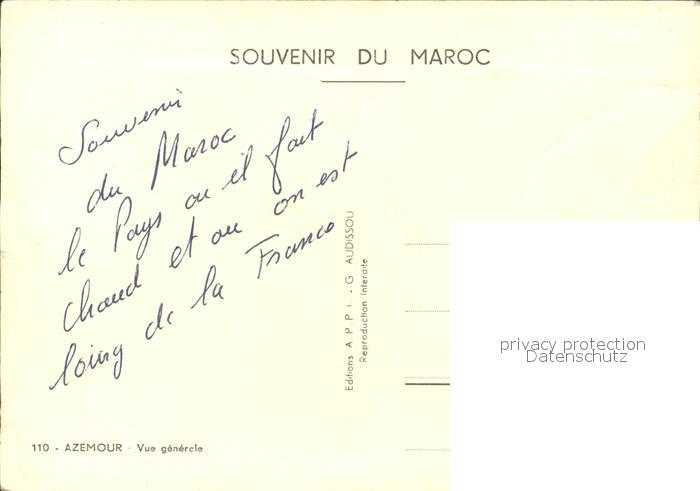 SOUVENIR DU MAROC
Souvenir
du Maroc
le Pays ou il fait
chaud et ou on est
loing de la France
Editions A.P.P.I. - G. AUDISSOU
Reproduction Interdite
privacy protection
Datenschutz
110 - AZEMOUR - Vue générale